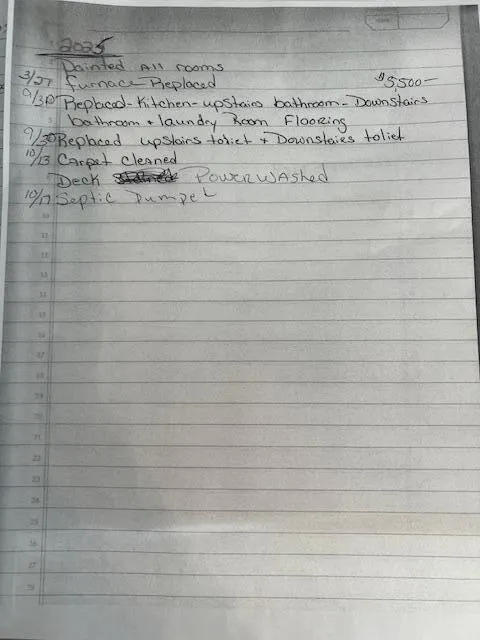 2025
Painted All rooms
3/27 Furnace Replaced $5,500-
9/30 Replaced-Kitchen-upstairs bathroom-Downstairs
bathroom + laundry Room Flooring
9/30 Replaced upstairs toliet + Downstaies toliet
10/13 Carpet cleaned
Deck PowerWashed
10/17 Septic Pumped
10
11
12
13
14
15
16
17
18
19
20
21
22
23
24
25
26
27
28